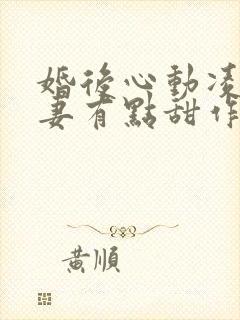 婚後心動凌
妻有點甜作
黃順